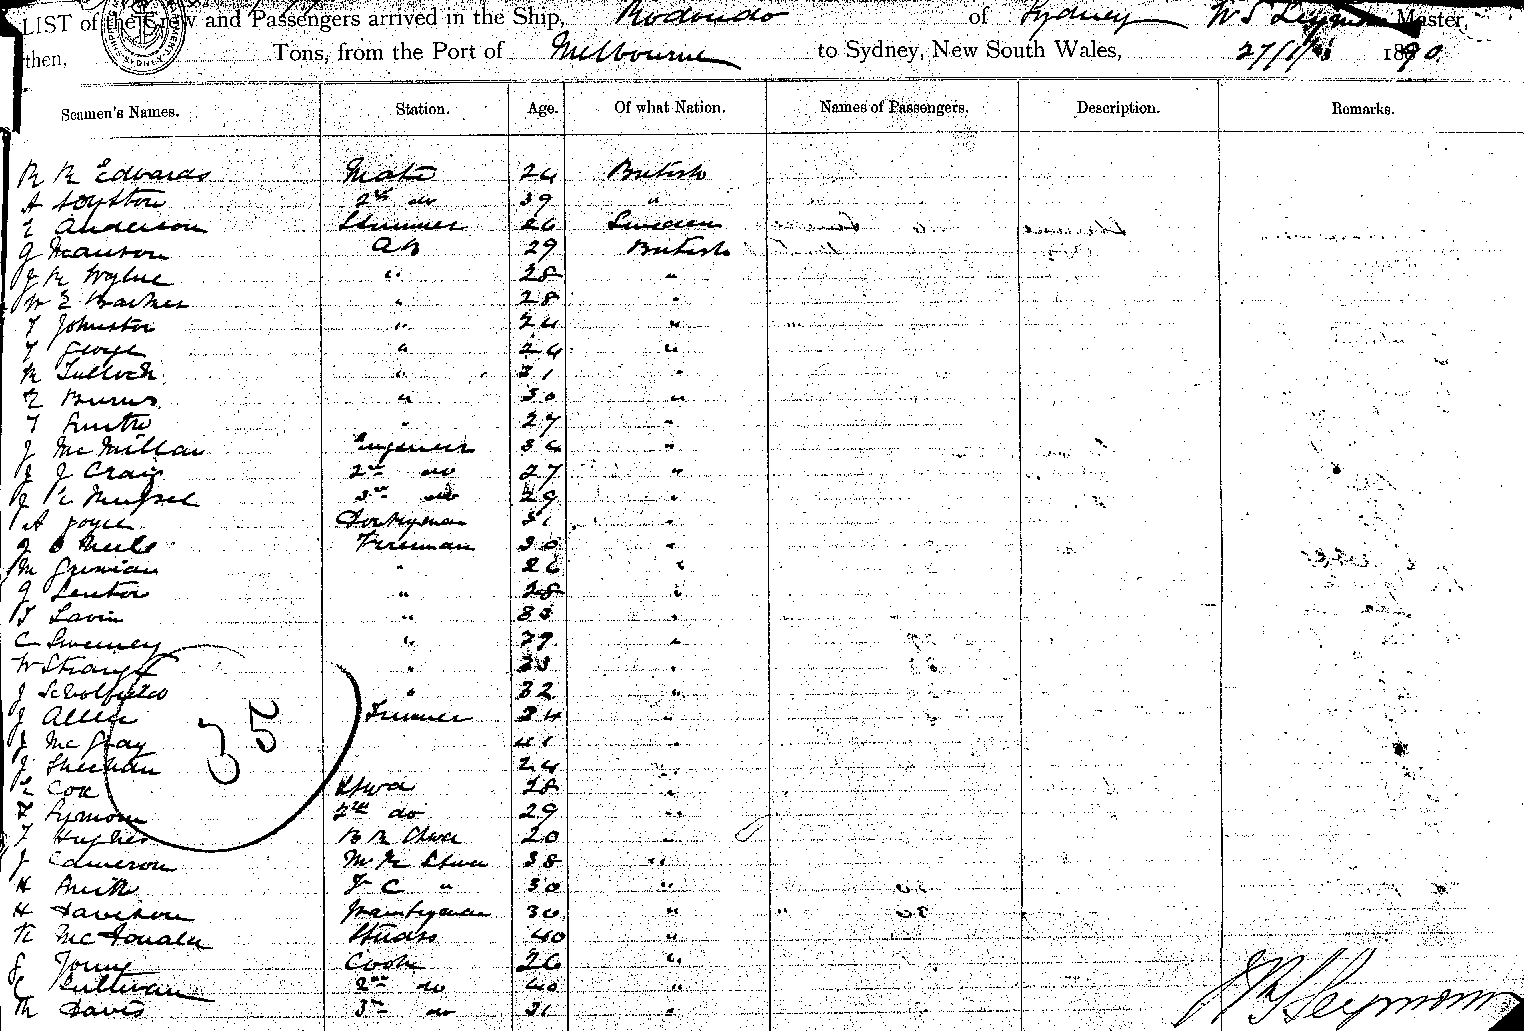 LIST of the Crew and Passengers arrived in the Ship, Rodondo of Sydney W S Seymour Master,
then, Tons, from the Port of Melbourne to Sydney, New South Wales, 1890
Seamen's Names. Station. Age. Of what Nation. Names of Passengers. Description. Remarks.
R R Edwards Mate 24 British
A 2nd do 39 "
Anderson 26 Sweden
J Manson AB 29 British
J R Wylie " 28 "
W E " 28 "
T Johnston " 24 "
T " 24 "
R Tulloch " 31 "
Burns " 30 "
T Smith " 27 "
J McMillan Engineer 34 "
J J Craig 2nd do 27 "
J 3rd do 29 "
A Joyce Donkeyman 31 "
J O Neile Fireman 30 "
M " 26 "
J Lenton " 28 "
T Lavin " 33 "
C Sweeney " 29 "
W Strange " "
J Scholfield " 32 "
J Allen Trimmer 24 "
J McGray 41 "
J Sheehan 24 "
Cox Stwd 28 "
Seymour 2nd do 29 "
T Hughes B R Stwd 20 "
J Cameron M R Stwd 38 "
H Smith F C " 30 "
H Davison Pantryman 30 "
R McDonald Studss 40 "
Young Cook 26 "
Sullivan 2nd do 40 "
M Davis 3rd do 31 "
35
W S Seymour